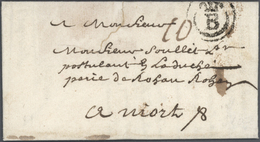 A Monsieur
10
B
Monsieur Soullet
postulant La duché
pairie de Rohan Rohan
a niort